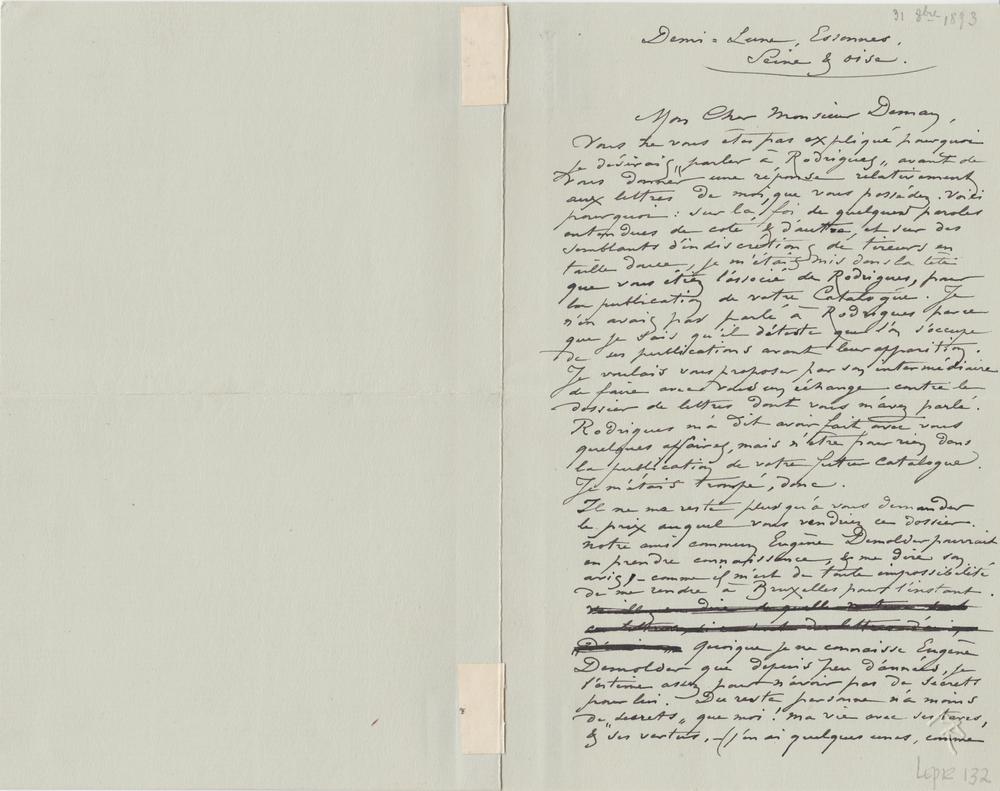 31 8bre 1893
Demi=Lune, Essonnes,
Seine & Oise.
Mon Cher Monsieur Deman,
Vous ne vous êtes pas expliqué pourquoi
je désirais „parler à Rodrigues„ avant de
vous donner une réponse relativement
aux lettres de moi, que vous possédez. Voici
pourquoi : sur la foi de quelques paroles
entendues de coté & d'autre, et sur des
semblants d'indiscrétions de tireurs en
taille douce, je m'étais mis dans la tête
que vous étiez l'associé de Rodrigues, pour
la publication de votre Catalogue. Je
n'en avais pas parlé à Rodrigues parce
que je sais qu'il déteste que l'on s'occupe
de ses publications avant leur apparition.
Je voulais vous proposer par son intermédiaire
de faire avec vous un échange contre le
dossier de lettres dont vous m'avez parlé.
Rodrigues m'a dit avoir fait avec vous
quelques affaires, mais n'être pour rien dans
la publication de votre futur Catalogue.
Je m'étais trompé, donc.
Il ne me reste plus qu'à vous demander
le prix auquel vous vendriez ce dossier.
Notre ami commun Eugène Demolder pourrait
en prendre connaissance, & me dire son
avis, – comme il m'est de toute impossibilité
de me rendre à Bruxelles pour l'instant.
quoique je ne connaisse Eugène
Demolder que depuis peu d'années, je
l'estime assez pour n'avoir pas de secrets
pour lui. Du reste personne n'a moins
de „secrets„ que moi ! ma vie avec ses tares,
& ses vertus, – (j'en ai quelques unes, comme
Lepr 132